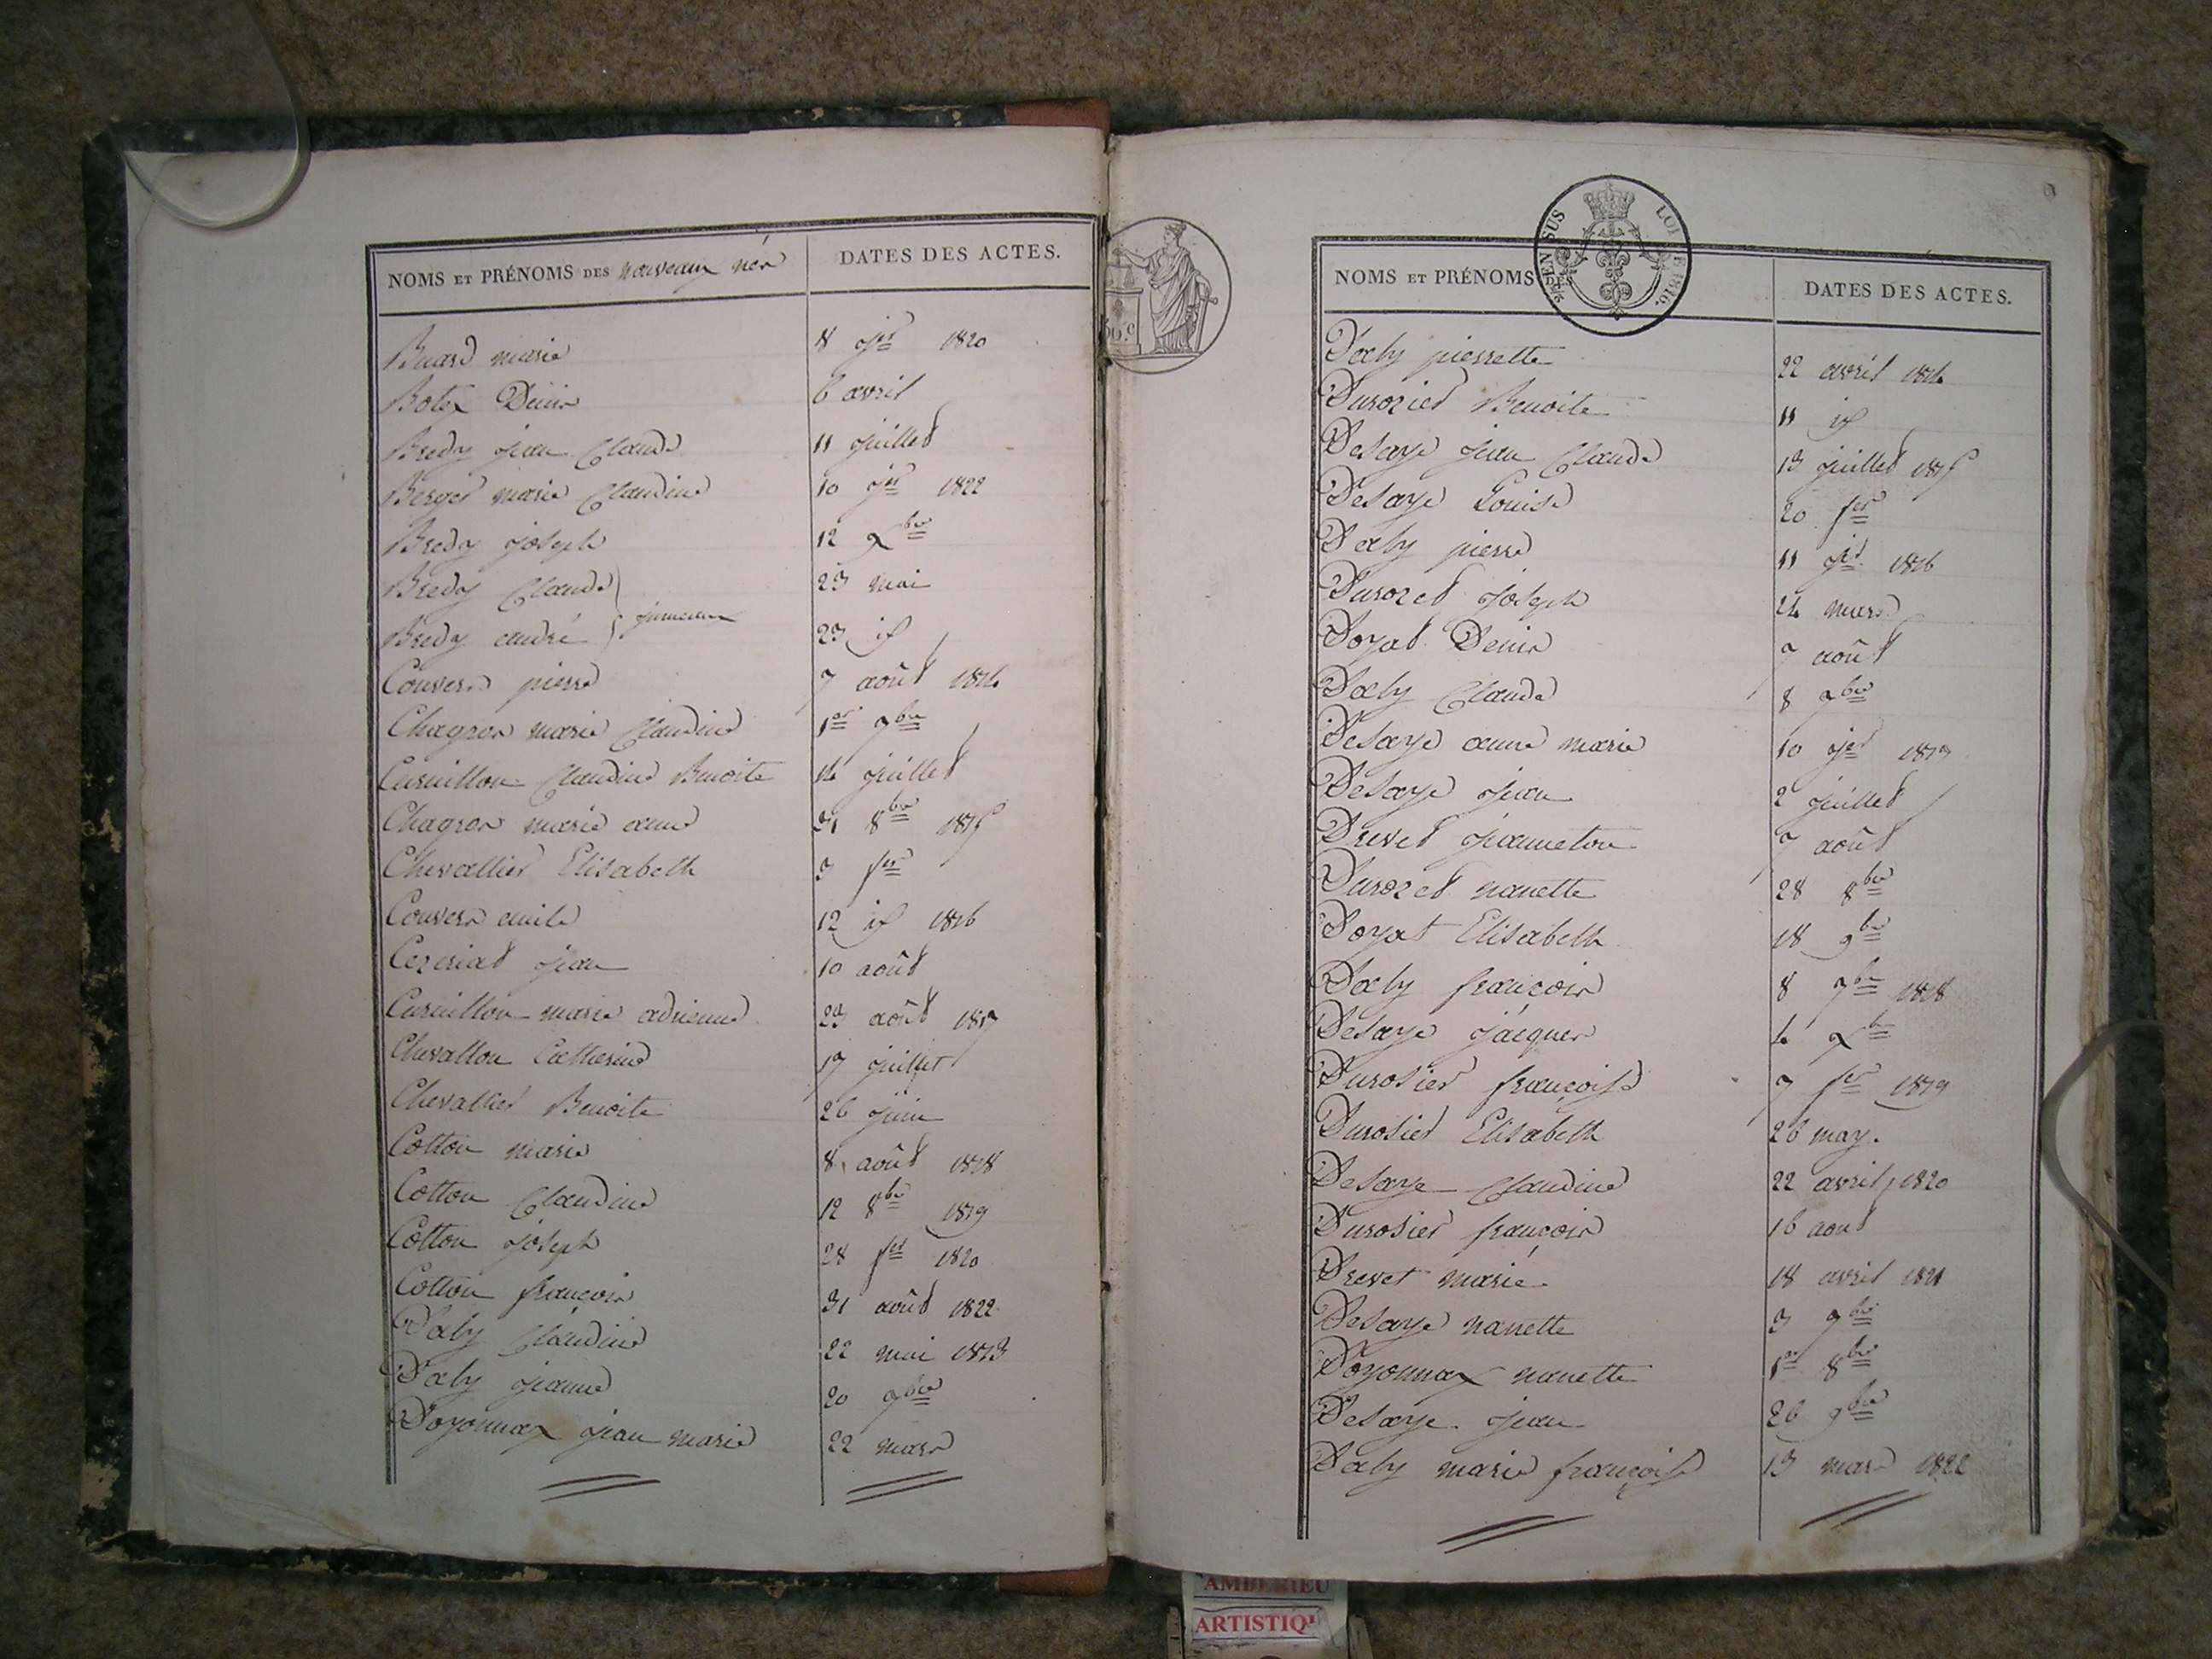 NOMS ET PRÉNOMS DES nouveaux nés DATES DES ACTES.
Buard marie 8 jer 1820
Botex Denis 6 avril
Bredy jean Claude 11 juillet
Berger marie Claudine 10 jer 1822
Bredy joseph 12 xbre
Bredy Claude 23 mai
Bredy andré jumeaux 23 id
Convers pierre 7 août 1814
Chagron marie Claudine 1er 9bre
Curuillon Claudine Benoite 14 juillet
Chagron marie anne 31 8bre 1815
Chevallier Elisabeth 3 fer
Convers emile 12 id 1816
Cezeriat jean 10 août
Curuillon marie adrienne 23 août 1817
Chevallon Catherine 17 juillet
Chevallier Benoite 26 juin
Cotton marie 8 août 1818
Cotton Claudine 12 8bre 1819
Cotton joseph 28 fer 1820
Cotton françois 31 août 1822
Daby Claudine 22 mai 1813
Daby jeanne 20 9bre
Doyonnax jean marie 22 mars
50.c
SUS
LOI DE 1816.
NOMS ET PRÉNOMS DES DATES DES ACTES.
Daby pierrette 22 avril 1814
Durozier Benoite 11 id
Desaye jean Claude 13 juillet 1815
Desaye Louise 20 fer
Daby pierre 11 jer 1816
Durozet joseph 24 mars
Doyat Denis 7 août
Daby Claude 8 9bre
Desaye anne marie 10 jer 1817
Desaye jean 2 juillet
Drevet jeanneton 7 août
Durozet nanette 28 8bre
Doyat Elisabeth 18 9bre
Daby françois 8 7bre 1818
Desaye jacques 4 xbre
Durosier françoise 7 fer 1819
Durosier Elisabeth 26 may.
Desaye Claudine 22 avril 1820
Durosier françois 16 aout
Drevet marie 18 avril 1821
Desaye nanette 3 9bre
Doyonnax nanette 1er 8bre
Desaye jean 26 9bre
Daby marie françoise 13 mars 1822
AMBERIEU
ARTISTIQ